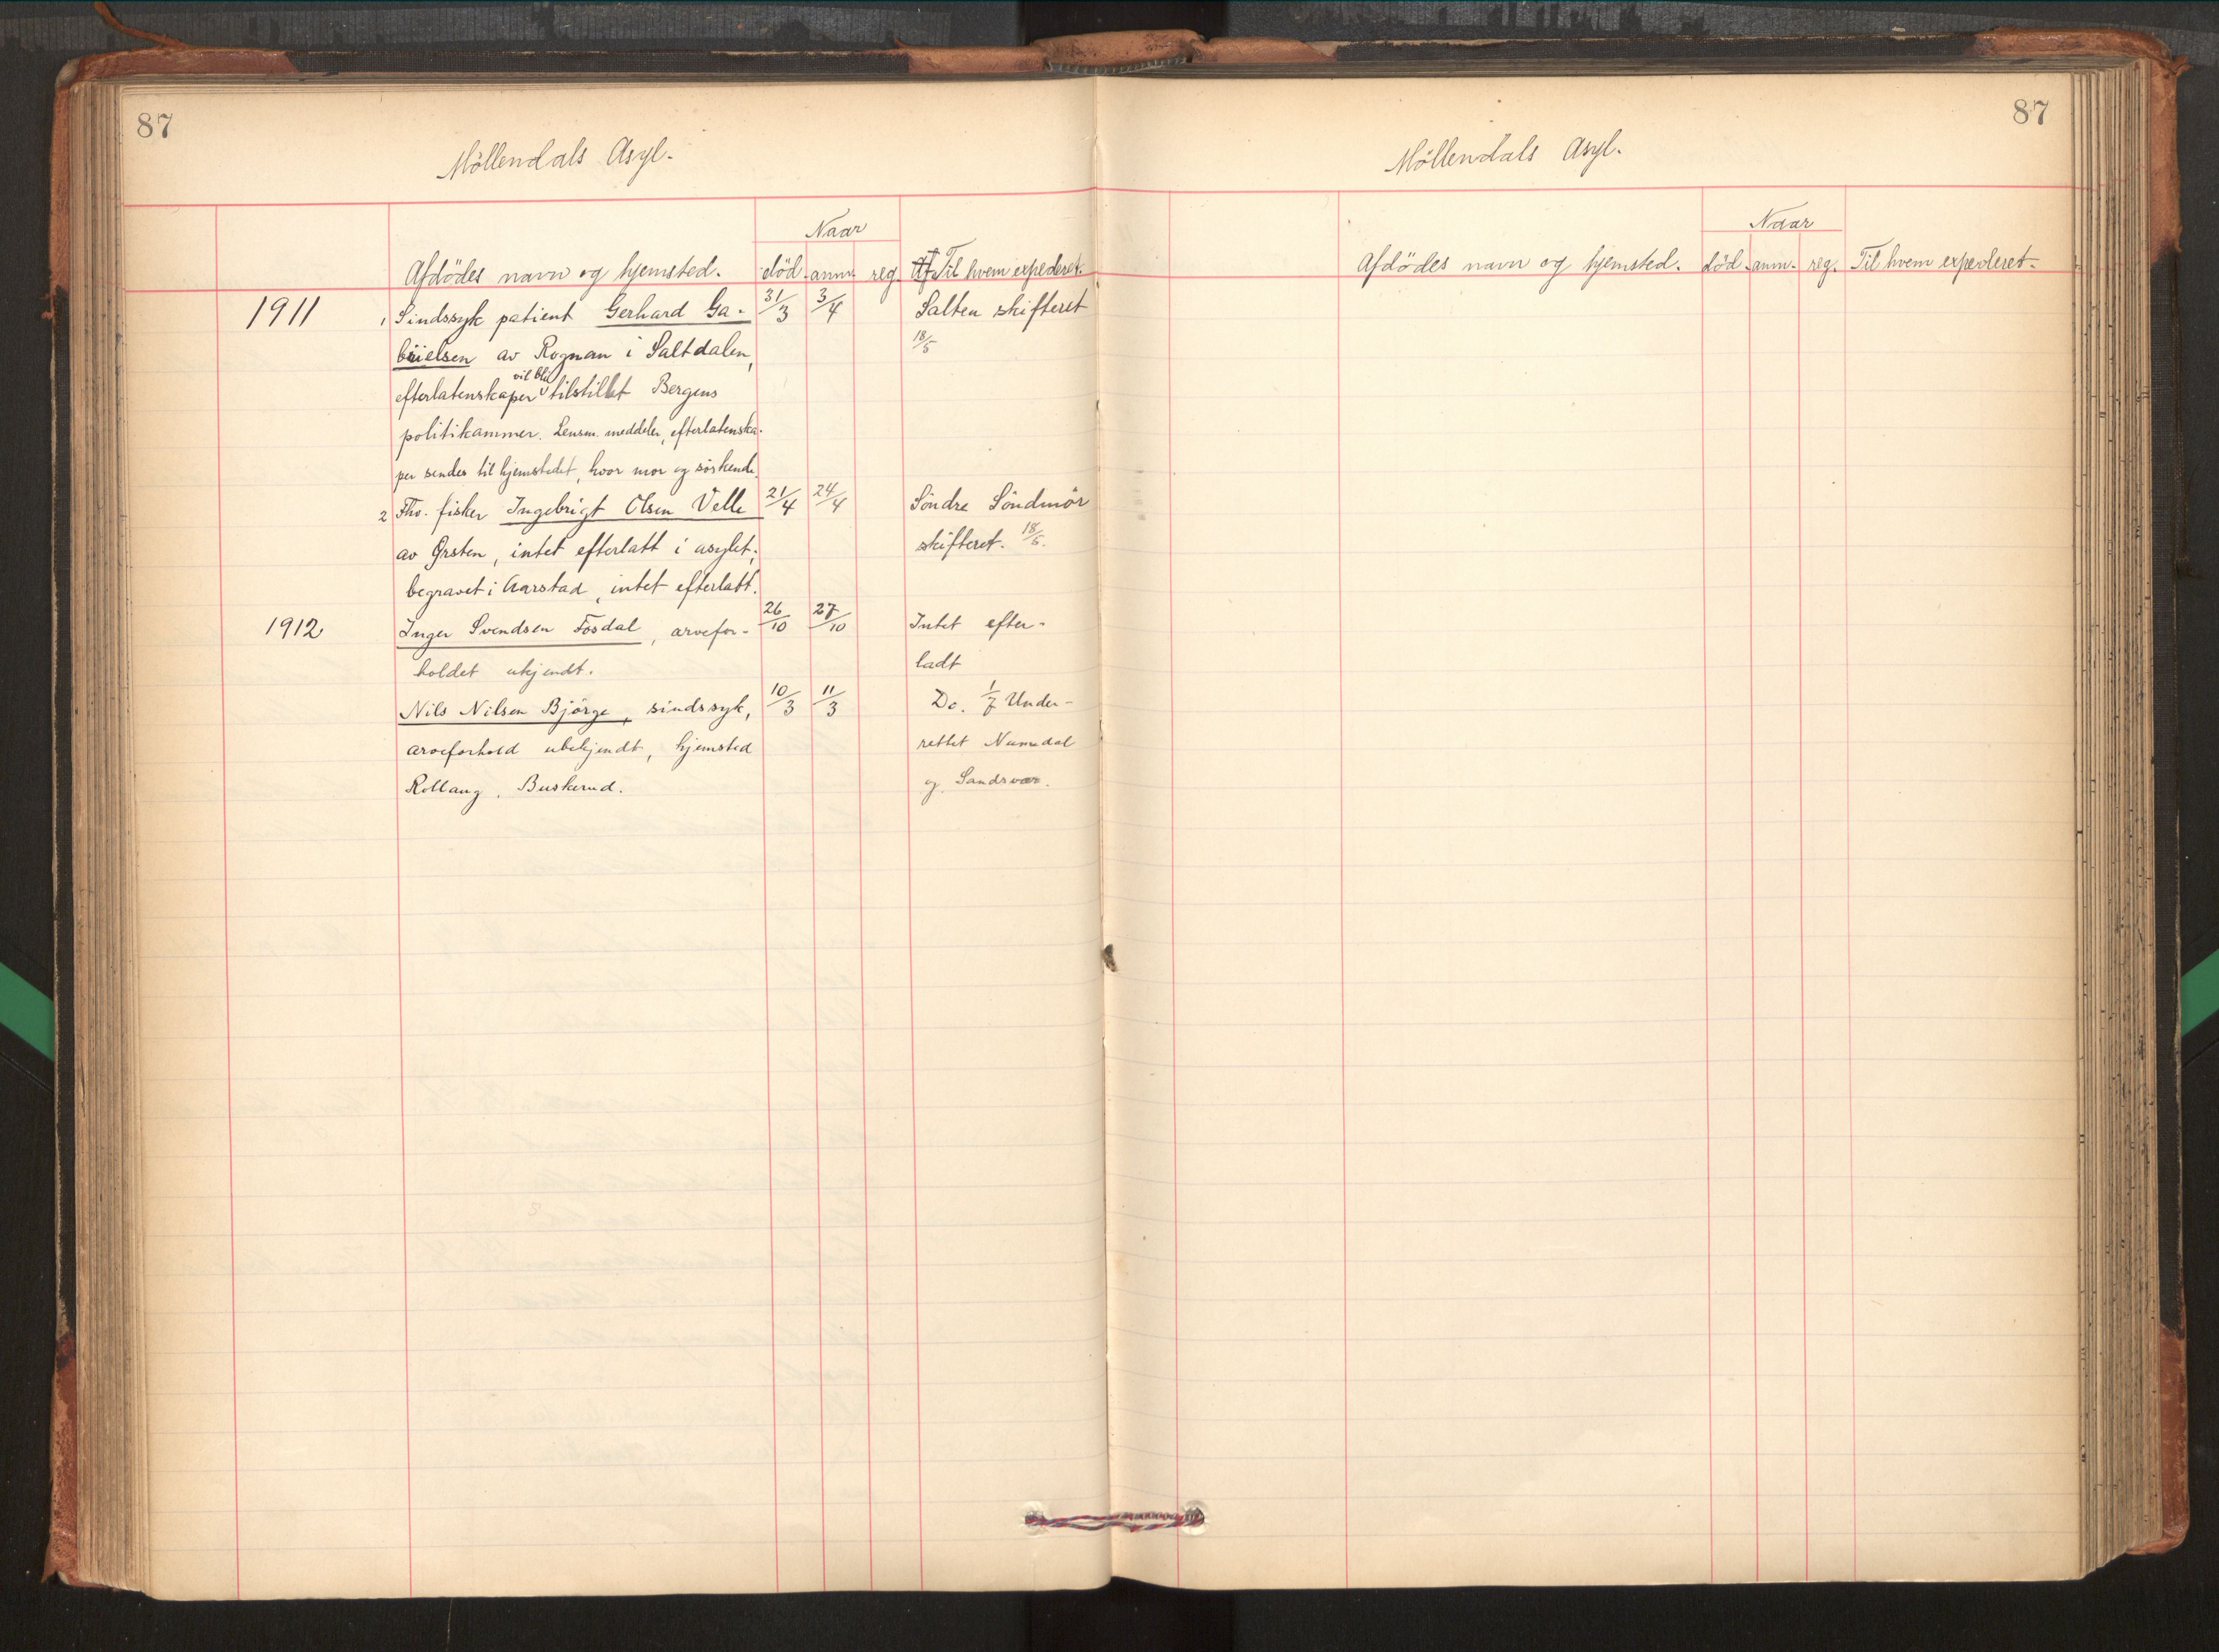 87
Möllendals Asyl.
Naar
Afdödes navn og hjemsted. död. anm. reg. Til hvem expederet.
1911 1 Sindssyk patient Gerhard Ga- 31/3 3/4 Salten skifteret
brielsen av Rognan i Saltdalen, 18/5
vil bli
efterlatenskaper tilstillet Bergens
politikammer. Lensm. meddeler, efterlatenska-
per sendes til hjemstedet, hvor mor og söskende.
2 Fhv. fisker Ingebrigt Olsen Velle 21/4 24/4 Söndre Söndmör
av Örsten, intet efterlatt i asylet; skifteret. 18/5.
begravet i Aarstad, intet efterlatt.
1912 Inger Svendsen Fosdal, arvefor- 26/10 27/10 Intet efter-
holdet ukjendt. ladt
Nils Nilsen Björge, sindssyk, 10/3 11/3 Do. 1/7 Under-
arveforhold ubekjendt, hjemsted rettet Numedal
Rollaug, Buskerud. og Sandsvær.
87
Möllendals Asyl.
Naar
Afdödes navn og hjemsted. död. anm. reg. Til hvem expederet.